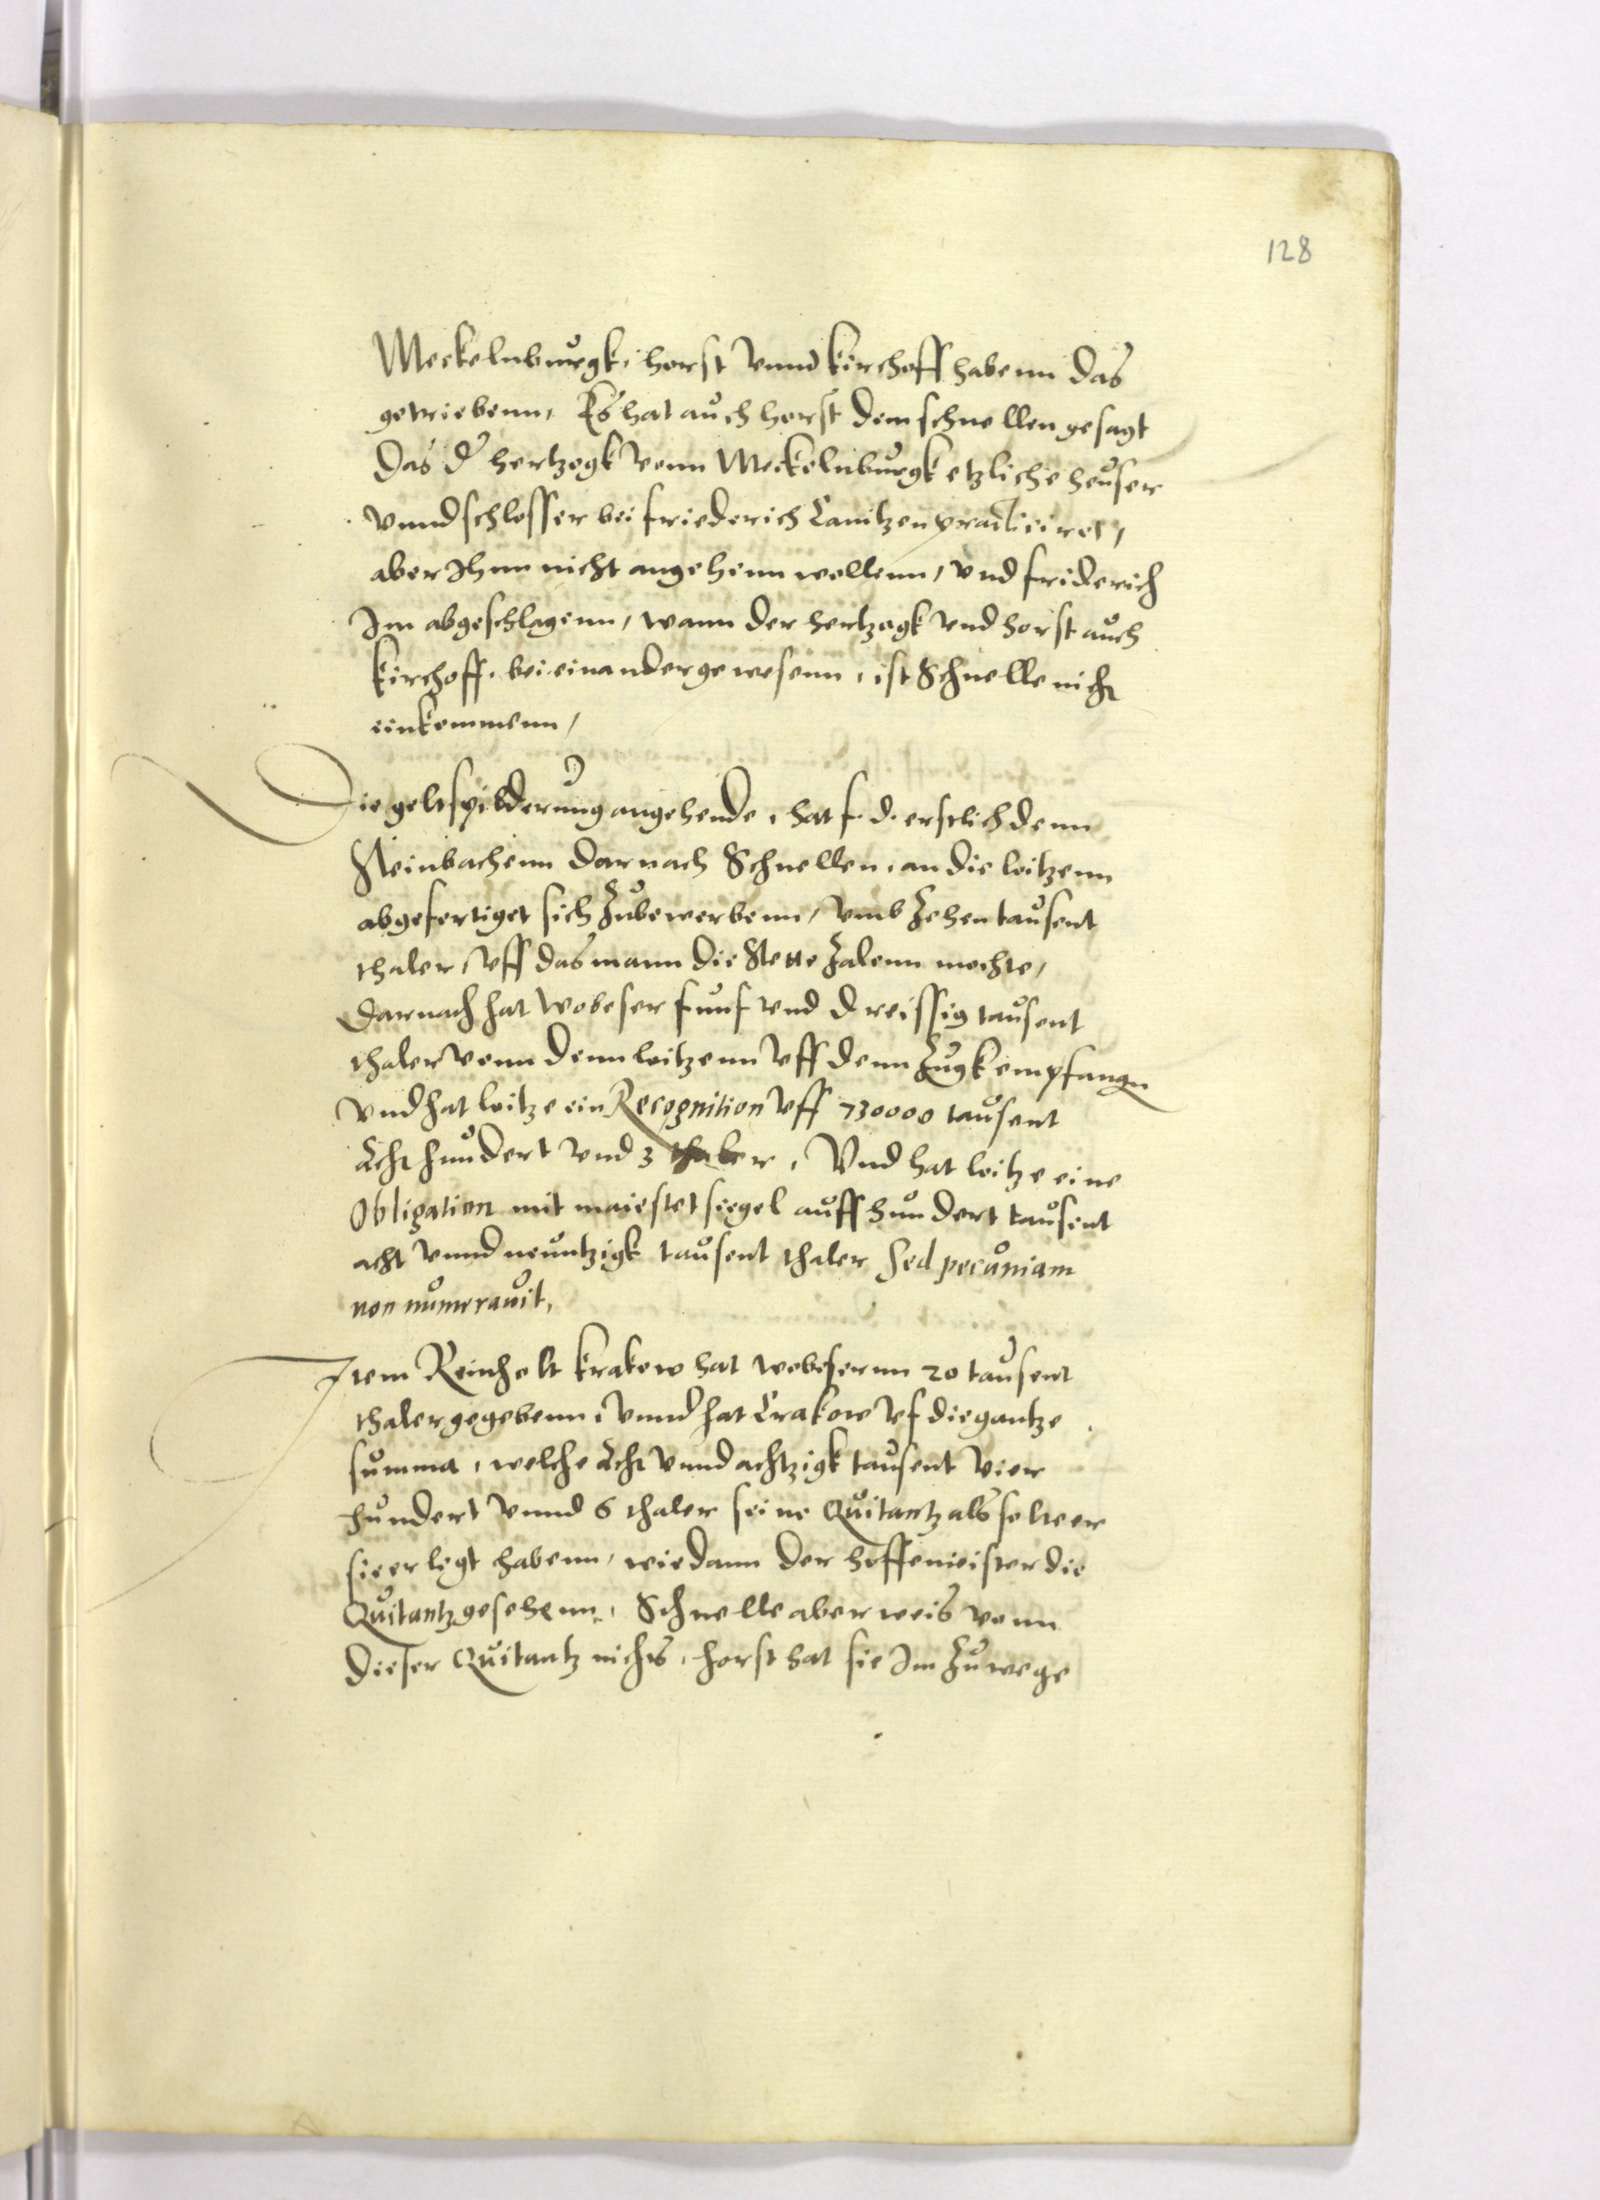 128
Meckelnburgk, horst vnnd Kirchoff habenn das
getriebenn, Es hat auch horst dem schnellen gesagt
Das d' hertzogk vonn Meckelnburgk etzliche heuser
vnnd schlosser bei friederich Canitzen practiciret,
aber Ihnn nicht angehenn wollenn, vnd friderich
Im abgeschlagenn, wann der hertzogk vnd horst auch
Kirchoff, bei einander gewesenn, ist Schnelle nicht
einkommenn,
Die geltspilderung angehende, hat f. d. erstlich denn
Steinbachenn darnach Schnellen, an die loitzenn
abgefertiget sich Zubewerbenn, vmb Zehen tausent
thaler, vff das mann die Zalenn mochte,
Darnach hat Wobeser funf vnd dreissig tausent
thaler vonn denn loitzenn vff denn Zugk empfangn
vnd hat loitze ein Recognition vff 730000 tausent
Acht hundert vnd 3 thaler, Vnd hat loitze eine
Obligation mit maiestet siegel auff hundert tausent
acht vnnd neuntzigk tausent thaler Sed pecuniam
non numerauit,
Item Reinholt Krakow hat wobesernn 20 tausent
thaler gegebenn, vnnd hat Crakow vf die gantze
summa, welche Acht vnnd achtzigk tausent vier
hundert vnnd 6 thaler seine Quitantz als solte er
sie erlegt habenn, wie dann der hoffemeister die
Quitantz gesehenn, Schnelle aber weis vonn
dieser Quitantz nichts, horst hat sie Im Zu wege